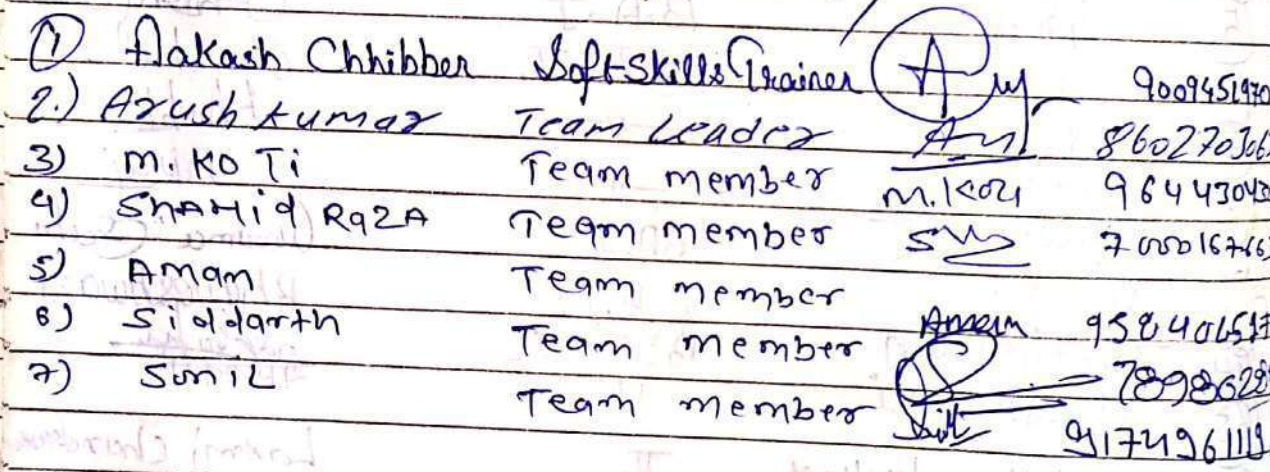 ① Aakash Chhibber Soft Skills Trainer Ay 9009451970
2.) Arush Kumar Team Leader 860270306
3) M. KO Ti Team member M. Koti 964430430
4) SHAHid RAZA Team member 7000016766
5) Aman Team member Aman 958406517
6) Siddarth Team member 7898622
7) Sunil Team member 9174961119